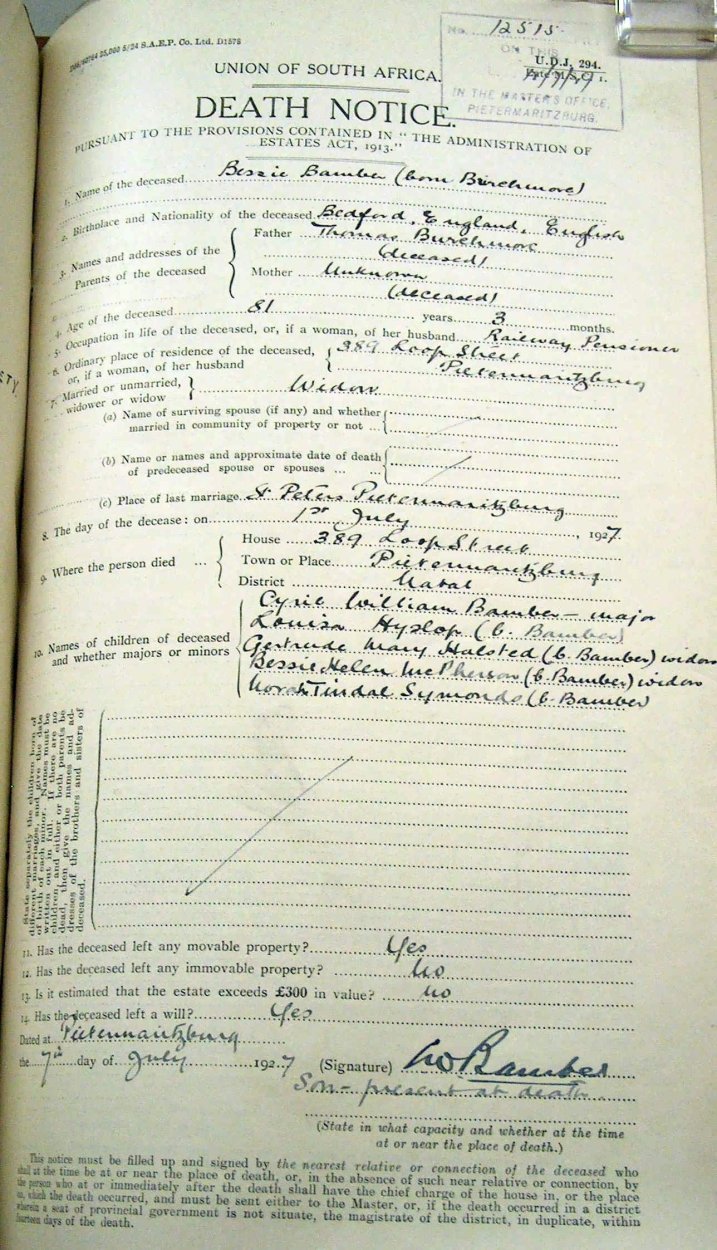 25,000 5/24 S.A.E.P. Co. Ltd. D1578
No. 12515
ON THIS
U.D.J. 294.
IN THE MASTER'S OFFICE,
PIETERMARITZBURG.
UNION OF SOUTH AFRICA.
DEATH NOTICE.
PURSUANT TO THE PROVISIONS CONTAINED IN "THE ADMINISTRATION OF
ESTATES ACT, 1913."
1. Name of the deceased Bessie Bamber (born Burchmore)
2. Birthplace and Nationality of the deceased Bedford, England, English
3. Names and addresses of the Parents of the deceased
Father Thomas Burchmore
(deceased)
Mother Unknown
(deceased)
4. Age of the deceased 81 years 3 months.
5. Occupation in life of the deceased, or, if a woman, of her husband Railway Pensioner
6. Ordinary place of residence of the deceased, 389 Loop Street
or, if a woman, of her husband Pietermaritzburg
7. Married or unmarried, widower or widow Widow
(a) Name of surviving spouse (if any) and whether
married in community of property or not ...
(b) Name or names and approximate date of death
of predeceased spouse or spouses ... ...
(c) Place of last marriage St Peters Pietermaritzburg
8. The day of the decease: on 1st July, 1927.
9. Where the person died ...
House 389 Loop Street
Town or Place Pietermaritzburg
District Natal
10. Names of children of deceased
and whether majors or minors
Cyril William Bamber - major
Louisa Hyslop (b. Bamber)
Gertrude Mary Halsted (b. Bamber) widow
Bessie Helen McPherson (b. Bamber) widow
Norah Tindal Symonds (b. Bamber
State separately the children born of
different marriages, and give the date
of birth of each minor. Names must be
written out in full. If there are no
children, and either or both parents be
dead, then give the names and ad-
dresses of the brothers and sisters of
deceased.
11. Has the deceased left any movable property? Yes
12. Has the deceased left any immovable property? No
13. Is it estimated that the estate exceeds £300 in value? No
14. Has the deceased left a will? Yes
Dated at Pietermaritzburg
the 7th day of July 1927
(Signature) Bamber
Son - present at death.
(State in what capacity and whether at the time
at or near the place of death.)
This notice must be filled up and signed by the nearest relative or connection of the deceased who
shall at the time be at or near the place of death, or, in the absence of such near relative or connection, by
the person who at or immediately after the death shall have the chief charge of the house in, or the place
on, which the death occurred, and must be sent either to the Master, or, if the death occurred in a district
wherein a seat of provincial government is not situate, the magistrate of the district, in duplicate, within
fourteen days of the death.